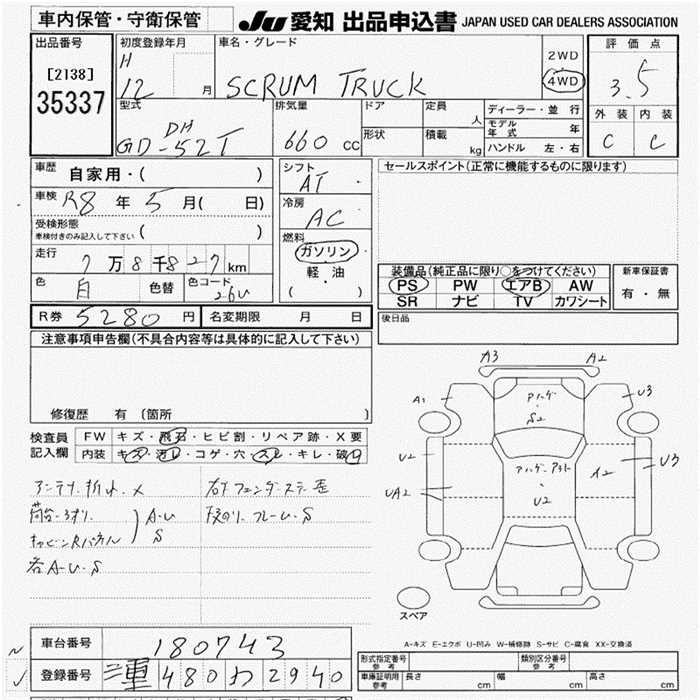 車内保管・守衛保管
JU 愛知 出品申込書 JAPAN USED CAR DEALERS ASSOCIATION
出品番号
[2138]
35337
初度登録年月
H 12 月
車名・グレード
SCRUM TRUCK
2WD
4WD
評価点
3.5
外装 内装
C C
型式
GD-DH52T
排気量
660 cc
ドア
形状
定員 人
積載 kg
ディーラー・並行
モデル年式 年
ハンドル 左・右
車歴
自家用・( )
車検 R8 年 5 月( 日)
受検形態
車検付きのみ記入して下さい ( )
走行
7万8千827km
色 白 色替 色コード 26U
シフト
AT
冷房
AC
燃料
ガソリン
軽・油
( )
セールスポイント(正常に機能するものに限ります)
装備品(純正品に限り○をつけてください)
PS PW エアB AW
SR ナビ TV カワシート
新車保証書
有・無
R券 5280 円 名変期限 月 日
後日品
注意事項申告欄(不具合内容等は具体的に記入して下さい)
修復歴 有 [箇所 ]
検査員記入欄
FW キズ・飛石・ヒビ割・リペア跡・X要
内装 キズ・汚レ・コゲ・穴・スレ・キレ・破レ
アンテナ折れ・X
右Fフェンダーステー歪
荷台・3方リ
A・U
S
キャビンRパネル
各A・U・S
A3 A2
A1 U3
S2
U2 A2 U3
UA2 U2
スペア
A-キズ E-エクボ U-凹み W-補修跡 S-サビ C-腐食 XX-交換済
車台番号 180743
登録番号 三重 480 わ 2940
形式指定番号 参考
類別区分番号 参考
車庫証明用 参考
長さ cm 幅 cm 高さ cm